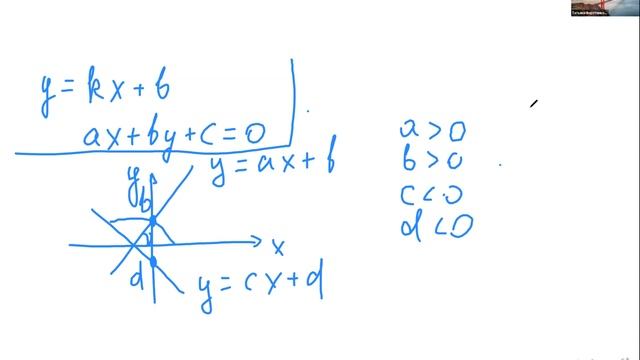 y = kx + b
ax + by + c = 0
y = ax + b
y
b
x
d
y = cx + d
a > 0
b > 0
c < 0
d < 0